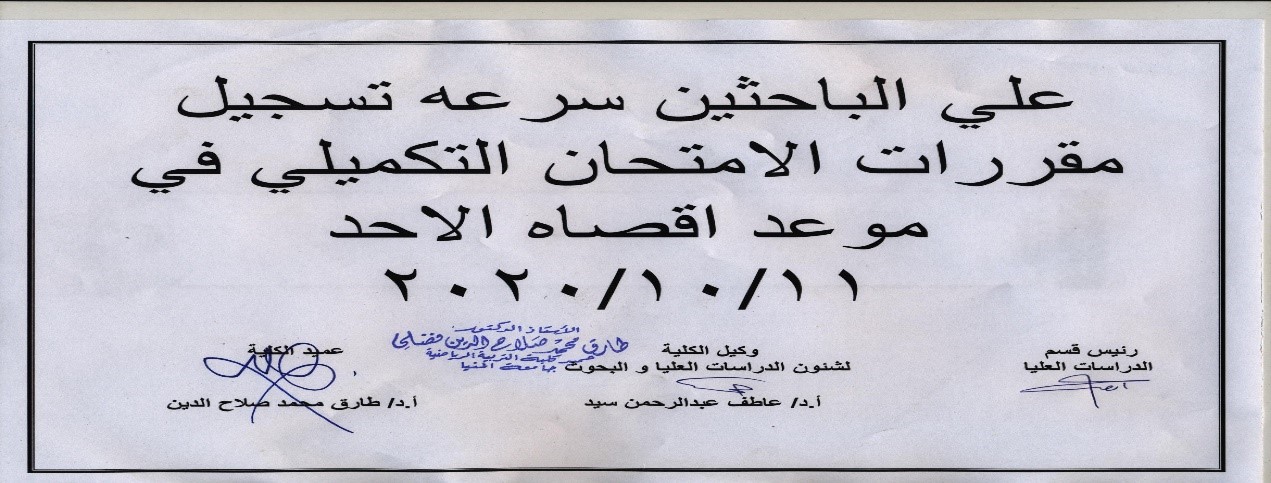 علي الباحثين سرعه تسجيل
مقررات الامتحان التكميلي في
موعد اقصاه الاحد
٢٠٢٠/١٠/١١
رئيس قسم
الدراسات العليا
وكيل الكلية
لشئون الدراسات العليا و البحوث
أ.د/ عاطف عبدالرحمن سيد
الأستاذ الدكتور
طارق محمد صلاح الدين فضلي
عميد كلية التربية الرياضية
جامعة المنيا
عميد الكلية
أ.د/ طارق محمد صلاح الدين